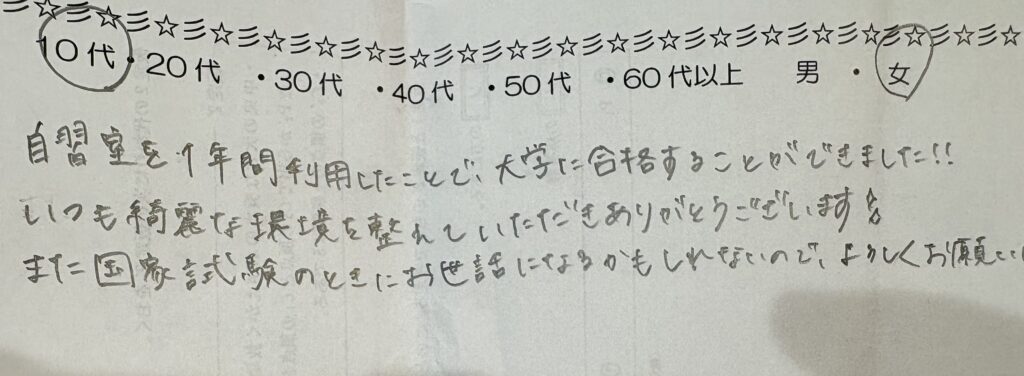 彡☆彡☆彡☆彡☆彡☆彡☆彡☆彡☆彡☆彡☆彡☆彡☆彡☆彡☆彡☆彡☆彡☆
10代・20代・30代・40代・50代・60代以上 男・女
自習室を1年間利用したことで、大学に合格することができました!!
いつも綺麗な環境を整えていただきありがとうございます
また国家試験のときにお世話になるかもしれないので、よろしくお願い